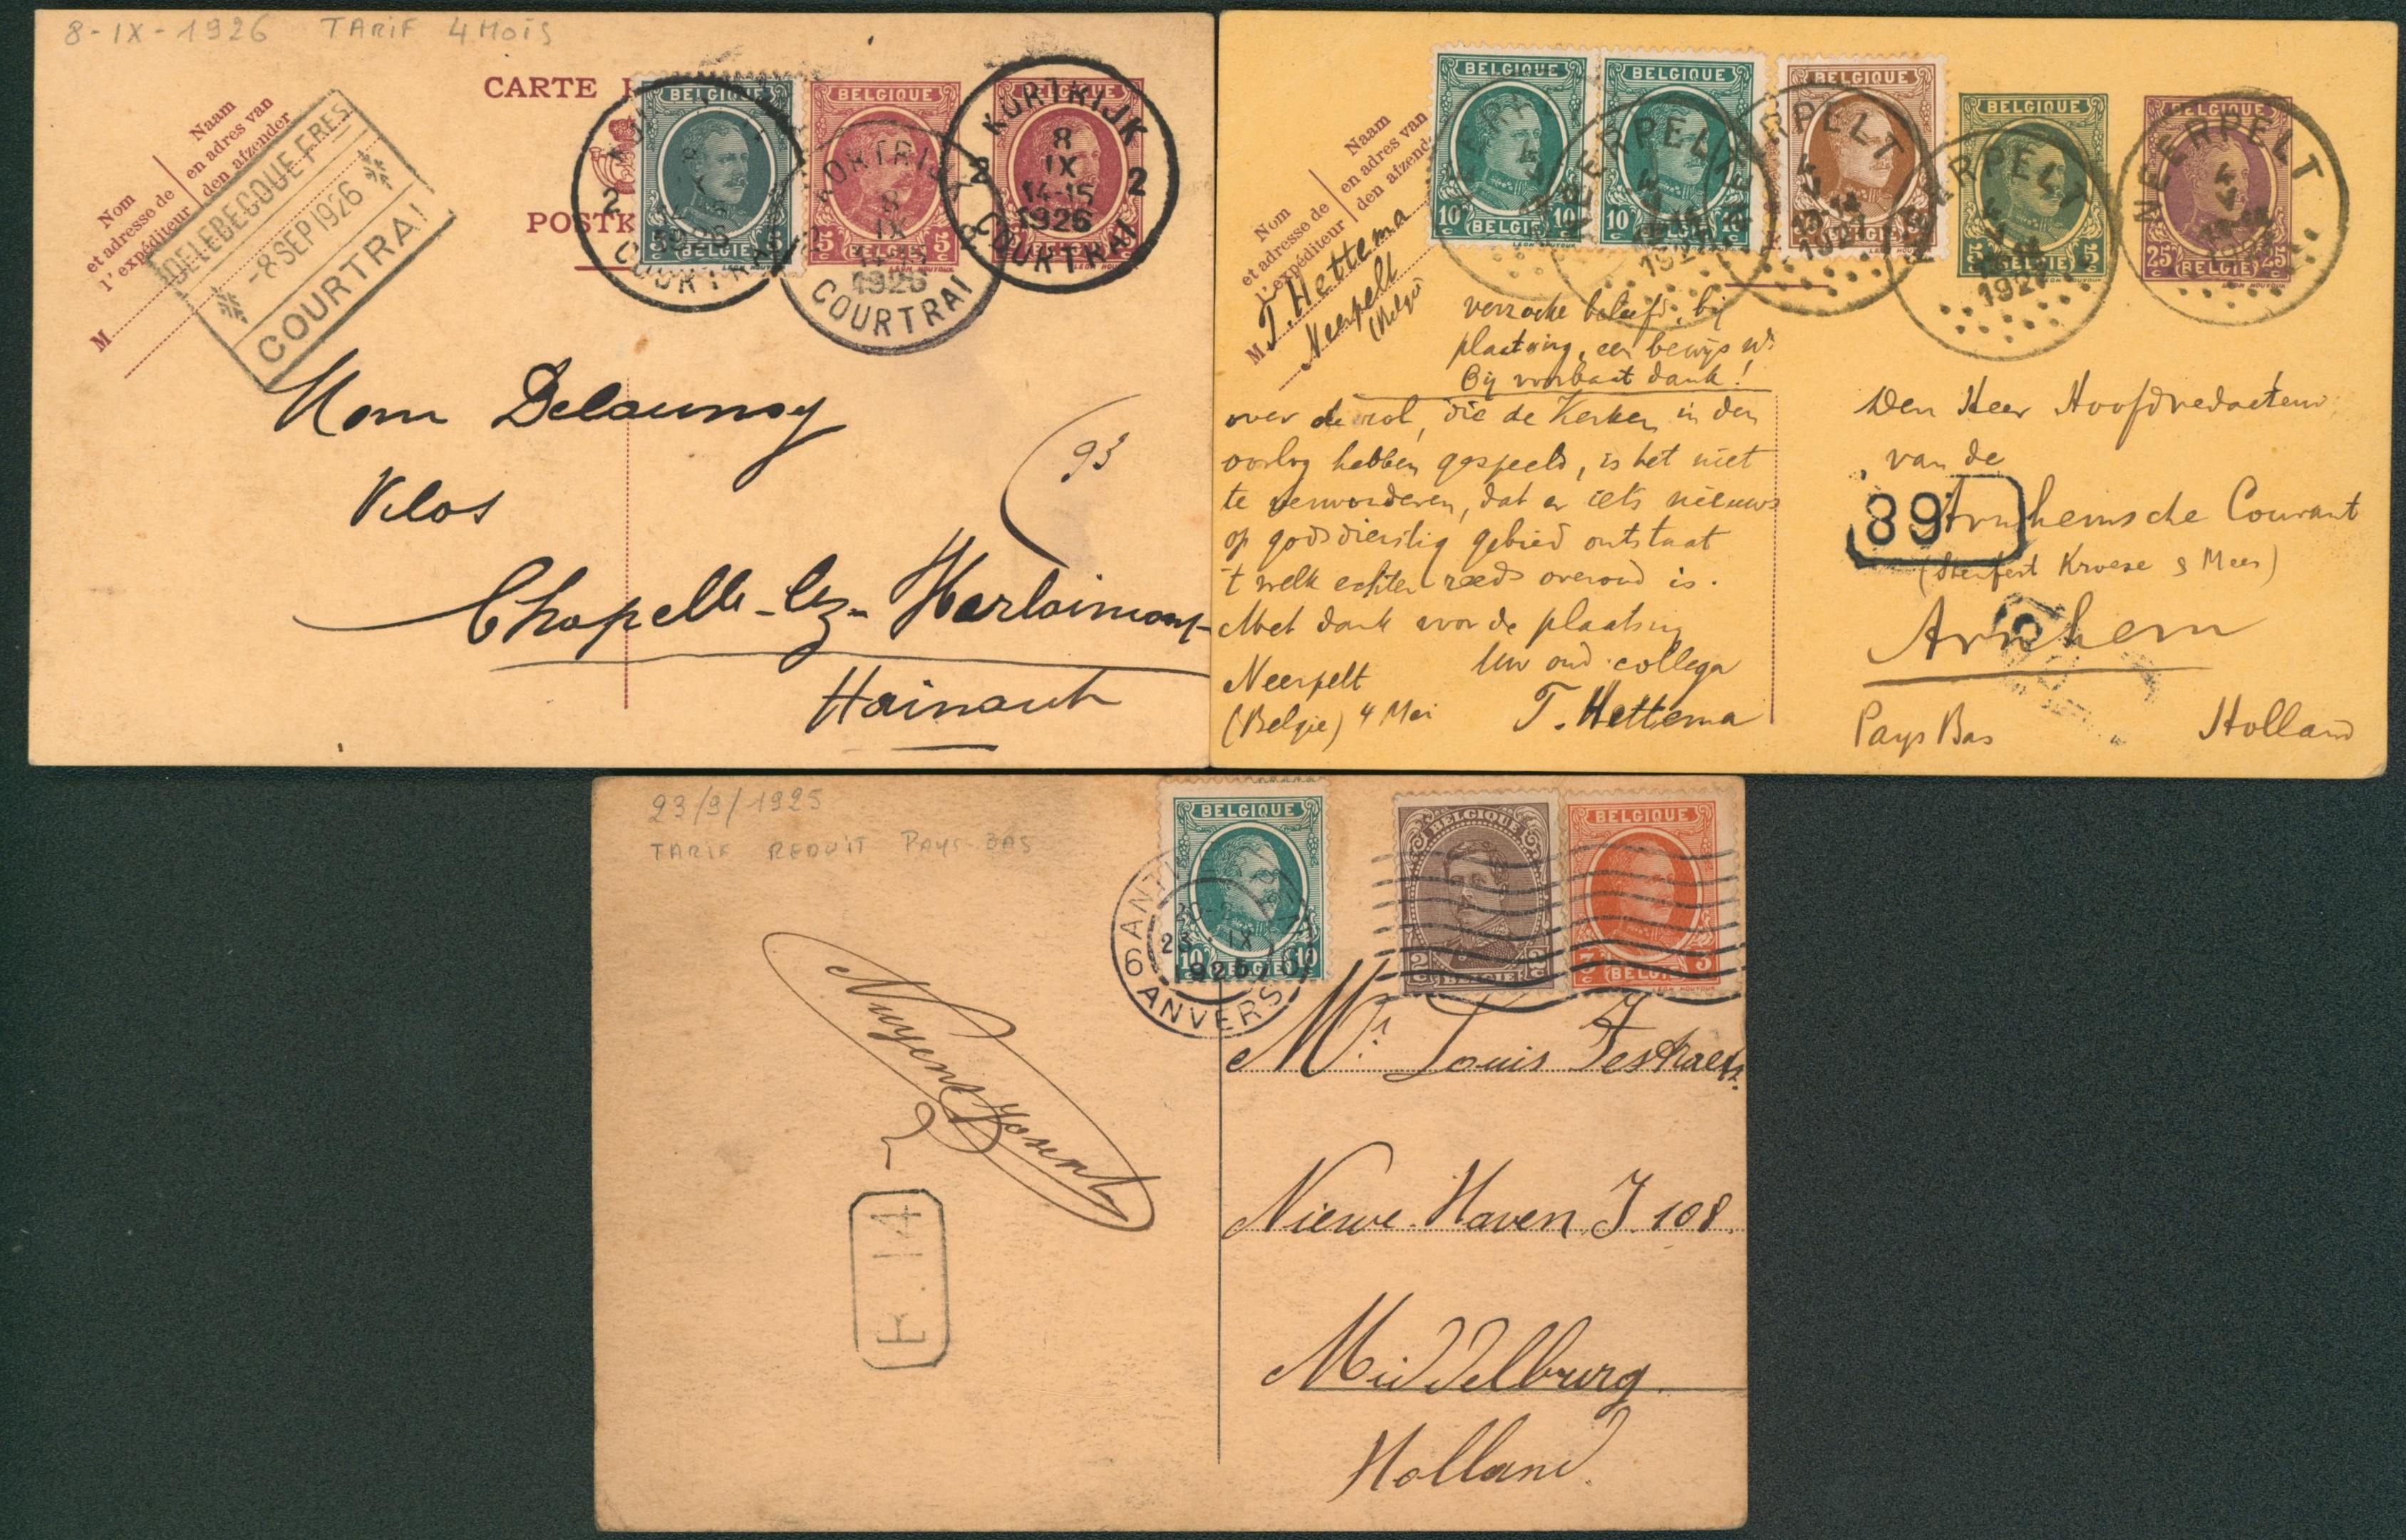 8-IX-1926 TARIF 4 MOIS
CARTE
POSTK
Nom
et adresse de
l'expéditeur
Naam
en adres van
den afzender
M
DELEBECQUE FRES
-8 SEP 1926
COURTRAI
BELGIQUE
5c BELGIË 5c
BELGIQUE
5c (BELGIË) 5c
BELGIQUE
KORTRIJK
2 2
8
IX
14-15
1926
COURTRAI
KORTRIJK
8
IX
14-15
1926
COURTRAI
2
1926
COURTRAI
Delaunoy
Velos
93
Chapelle-lez-Herlaimont
Hainaut
Nom
et adresse de
l'expéditeur
Naam
en adres van
M
T. Hettema
Neerpelt
BELGIQUE
10c (BELGIË) 10c
BELGIQUE
10c (BELGIË) 10c
BELGIQUE
BELGIQUE
5c (BELGIË) 5c
BELGIQUE
25c (BELGIË) 25c
NEERPELT
NEERPELT
NEERPELT
NEERPELT
NEERPELT
verzoeke beleefd, bij
plaatsing, een bewijs nr
Bij voorbaat dank!
over de rol, die de Kerken in den
oorlog hebben gespeeld, is het niet
te verwonderen, dat er iets nieuws
op godsdienstig gebied ontstaat
't welk echter reeds oeroud is.
Met dank voor de plaatsing
Uw oud-collega
Neerpelt
(Belgie) 4 Mei
T. Hettema
Den Heer Hoofdredacteur
van de
Arnhemsche Courant
89
Kroese & Mees)
Arnhem
Pays Bas
Holland
23/9/1925
TARIF REDUIT PAYS-BAS
BELGIQUE
10c BELGIË 10c
BELGIQUE
2c BELGIË 2c
BELGIQUE
3c (BELGIË) 3c
LEON HOUYOUX
6 ANTW
23 IX
1925
ANVERS 6
E.14
Mr. Louis
Nieuwe Haven J 108
Middelburg
Holland.